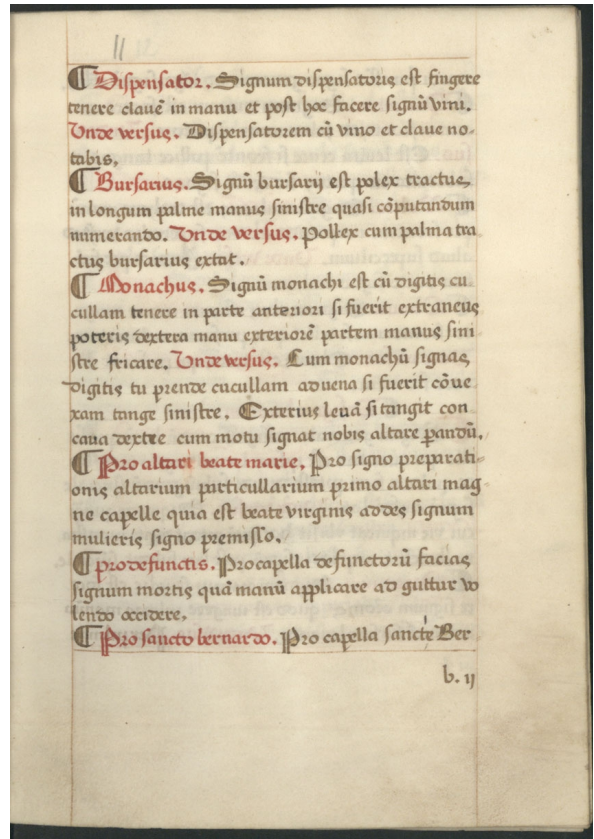 11
¶ Dispensator. Signum dispensatoris est fingere
tenere clauē in manu et post hoc facere signū vini.
Vnde versus. Dispensatorem cū vino et claue no-
tabis.
¶ Bursarius. Signū bursarij est polex tractus
in longum palme manus sinistre quasi cōputandum
numerando. Vnde versus. Pollex cum palma tra
ctus bursarius extat.
¶ Monachus. Signū monachi est cū digitis cu-
cullam tenere in parte anteriori si fuerit extraneus
poteris dextera manu exteriorē partem manus sini
stre fricare. Vnde versus. Cum monachū signas
digitis tu prende cucullam aduena si fuerit cōue
xam tange sinistre. Exterius leuā si tangit con
caua dextre cum motu signat nobis altare ꝑandū.
¶ Pro altari beate marie. Pro signo preparati-
onis altarium particullarium primo altari mag
ne capelle quia est beate virginis addes signum
mulieris signo premisso.
¶ pro defunctis. Pro capella defunctorū facias
signum mortis quā manū applicare ad guttur vo
lendo occidere.
¶ Pro sancto bernardo. Pro capella sancte Ber
b. ij